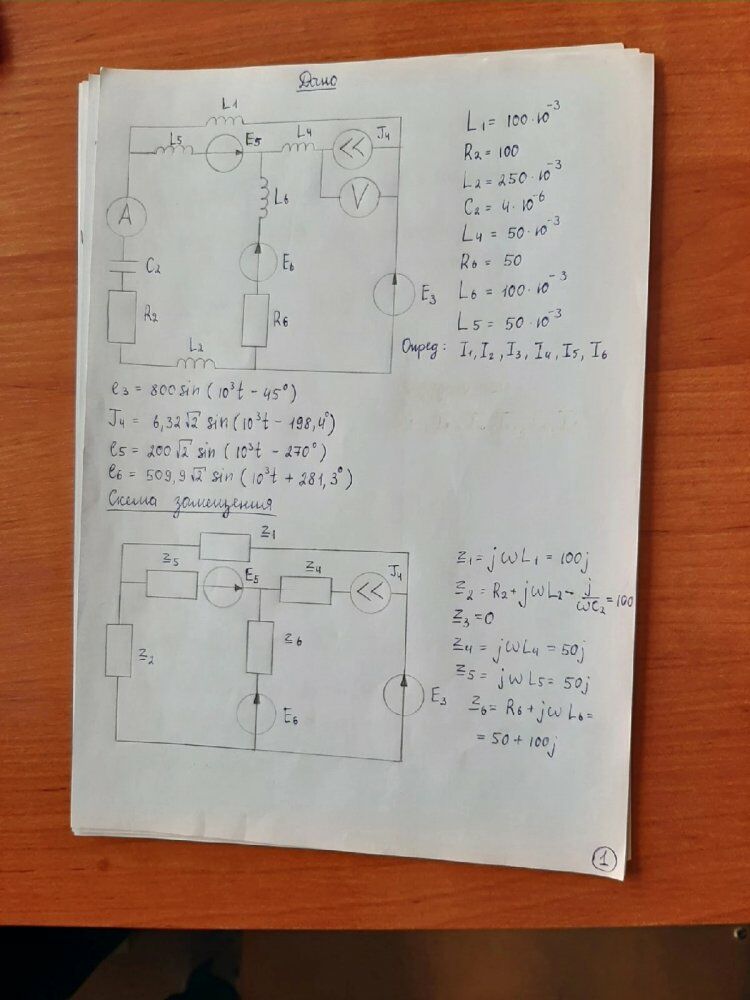 Дано
L1
L5
E5
L4
J4
A
L6
V
C2
E6
E3
R2
R6
L2
L1 = 100·10⁻³
R2 = 100
L2 = 250·10⁻³
C2 = 4·10⁻⁶
L4 = 50·10⁻³
R6 = 50
L6 = 100·10⁻³
L5 = 50·10⁻³
Опред: I1, I2, I3, I4, I5, I6
e3 = 800 sin (10³t - 45°)
J4 = 6,32√2 sin (10³t - 198,4°)
e5 = 200√2 sin (10³t - 270°)
e6 = 509,9√2 sin (10³t + 281,3°)
Схема замещения
Z1
Z5
E5
Z4
J4
Z2
Z6
E6
E3
Z1 = jωL1 = 100j
Z2 = R2 + jωL2 - j/ωC2 = 100
Z3 = 0
Z4 = jωL4 = 50j
Z5 = jωL5 = 50j
Z6 = R6 + jωL6 =
= 50 + 100j
1